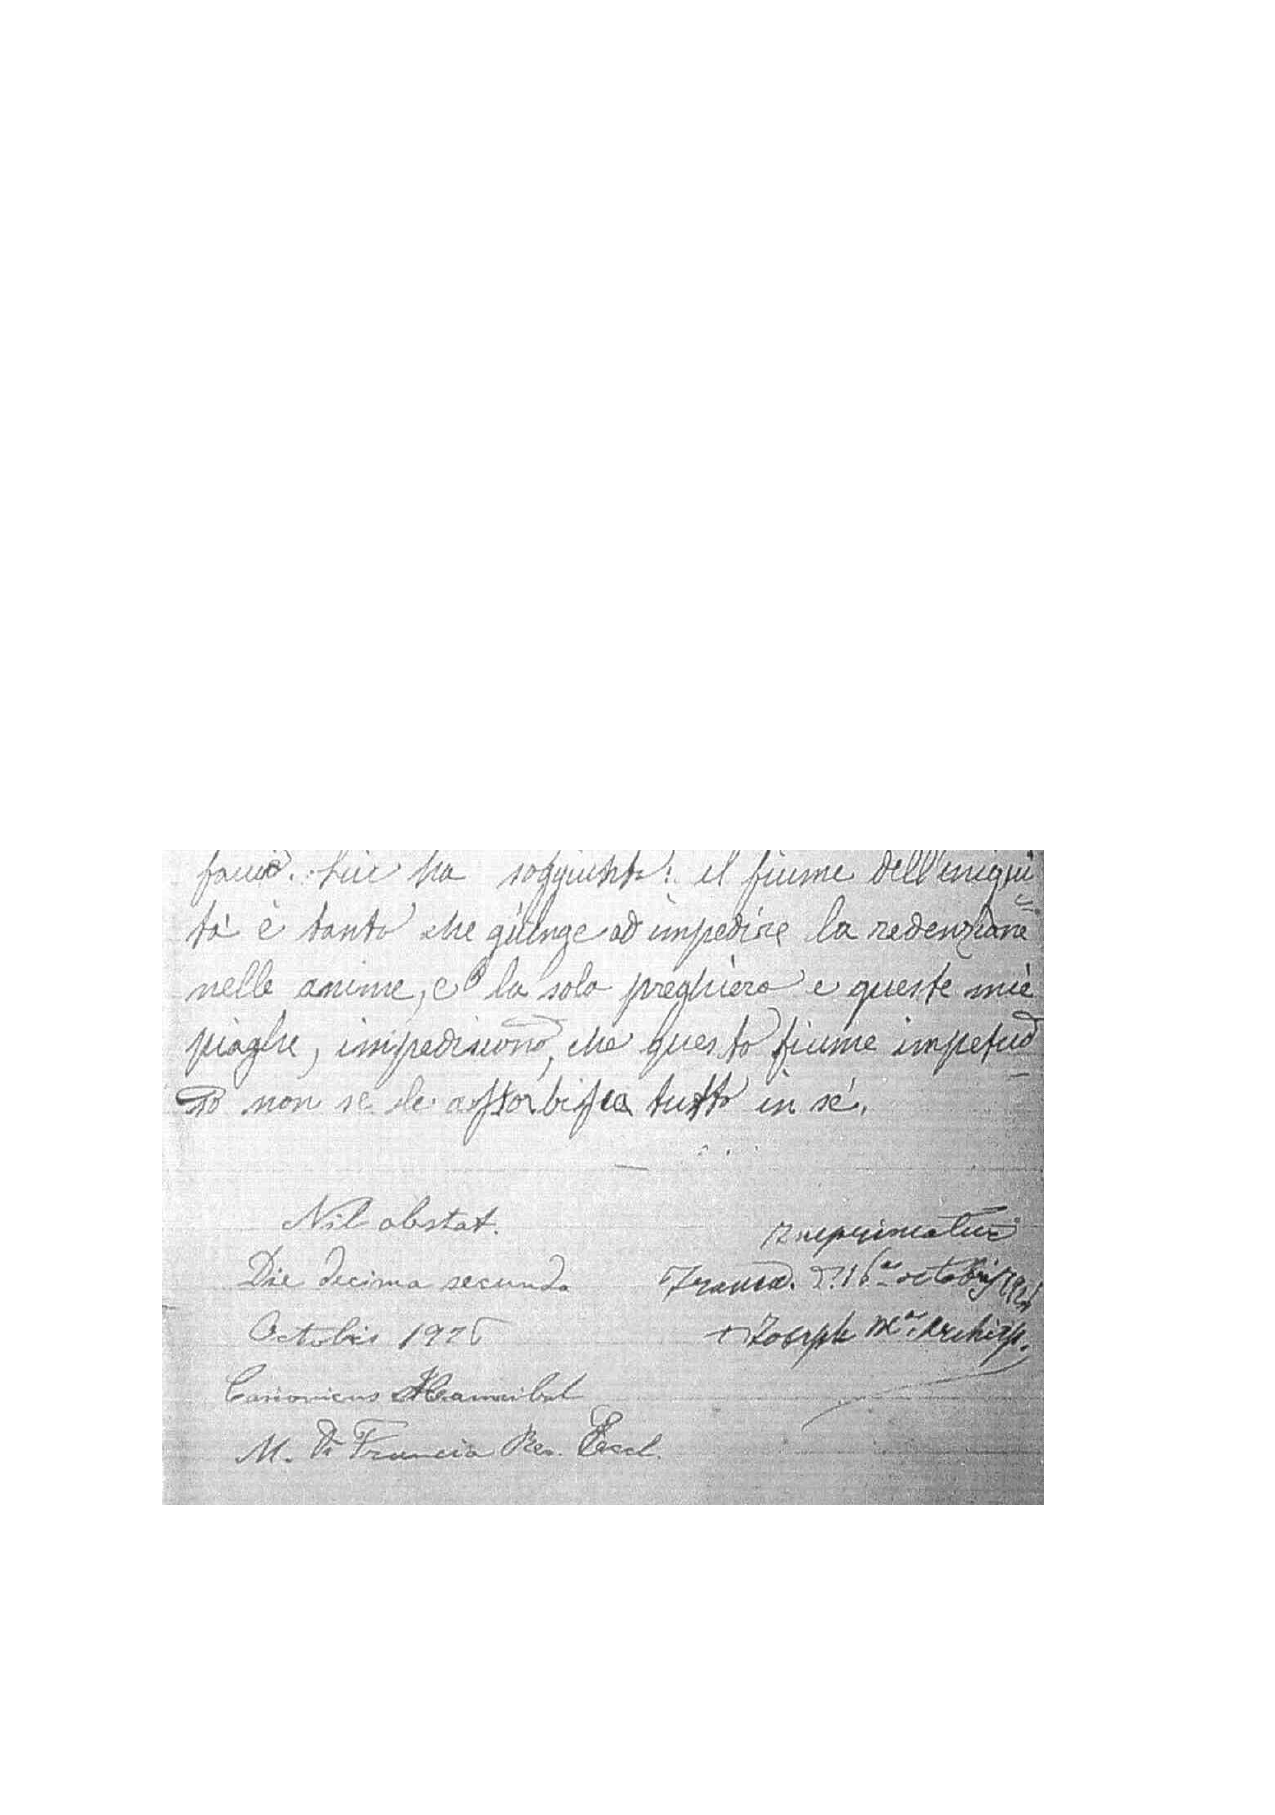 facciò. Lui ha soggiunto: il fiume dell'iniqui
tà è tanto che giunge ad impedire la redenzione
nelle anime, e la solo preghiera e queste mie
piaghe, impediscono, che questo fiume impetuo
so non se le assorbisca tutto in sé.
Nil obstat.
Die decima secunda
Octobris 1926
Canonicus Hannibal
M. Di Francia Rev. Eccl.
Imprimatur
16 octobris 1926
+ Joseph M.ª Archiep.